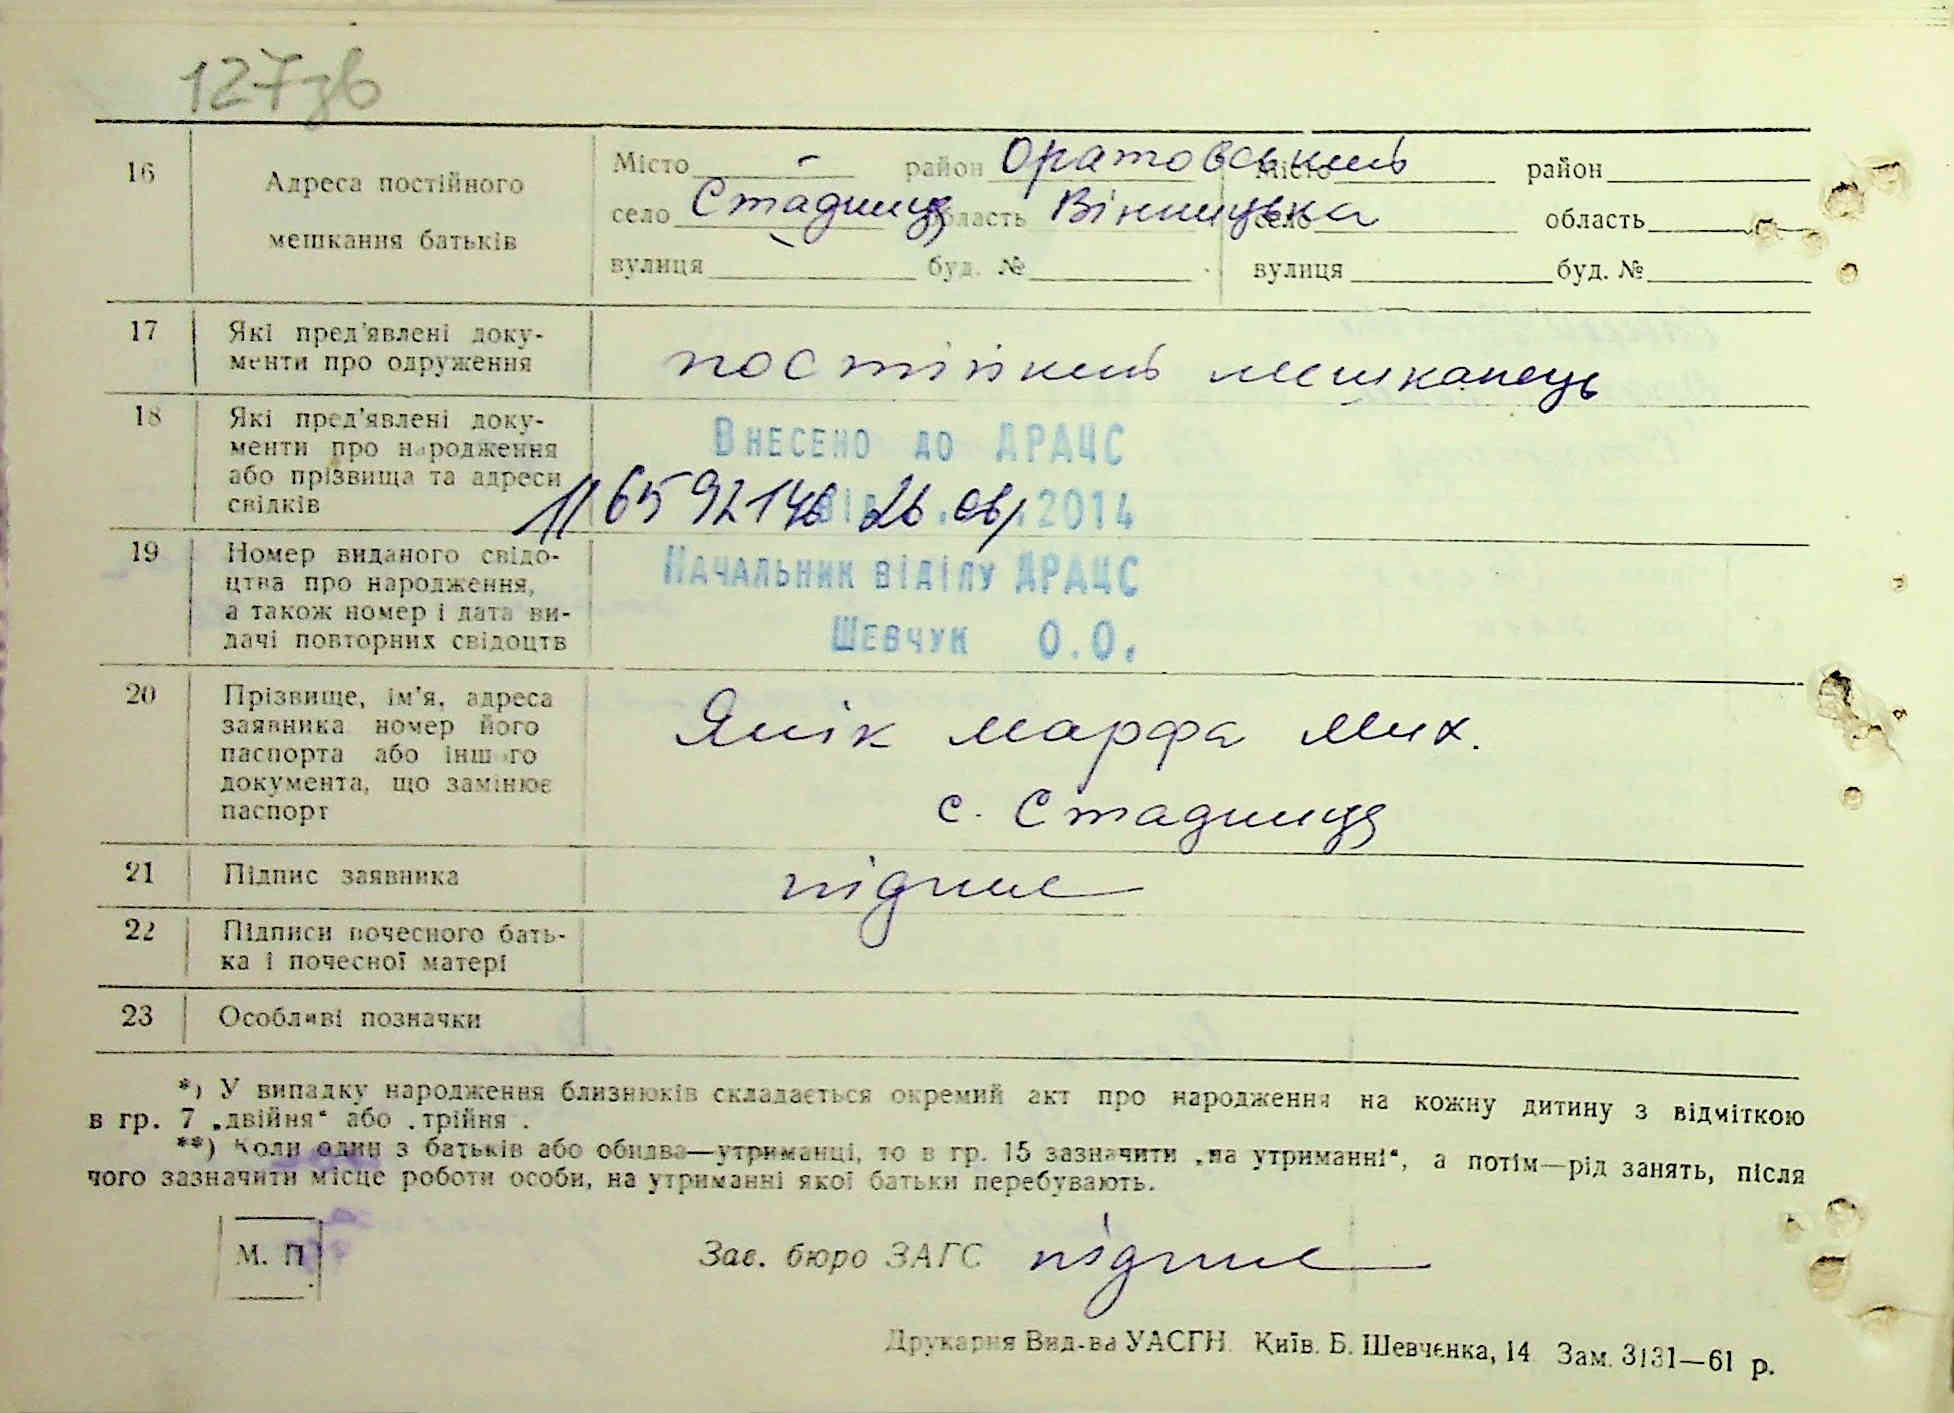 127зв
16 Адреса постійного мешкання батьків
Місто - район Оратовський Місто район
село Стадниця область Вінницька село область
вулиця буд. № вулиця буд. №
17 Які пред'явлені доку-
менти про одруження
постійний мешканець
18 Які пред'явлені доку-
менти про народження
або прізвища та адреси
свідків
Внесено до ДРАЦС
від 26.06.2014
19 Номер виданого свідо-
цтва про народження,
а також номер і дата ви-
дачі повторних свідоцтв
Начальник віділу ДРАЦС
Шевчук О.О.
20 Прізвище, ім'я, адреса
заявника номер його
паспорта або іншого
документа, що замінює
паспорт
Марфа Мих.
с. Стадниця
21 Підпис заявника підпис
22 Підписи почесного бать-
ка і почесної матері
23 Особливі позначки
*) У випадку народження близнюків складається окремий акт про народження на кожну дитину з відміткою
в гр. 7 „двійня“ або „трійня“.
**) Коли один з батьків або обидва—утриманці, то в гр. 15 зазначити „на утриманні“, а потім—рід занять, після
чого зазначити місце роботи особи, на утриманні якої батьки перебувають.
М. П
Зав. бюро ЗАГС підпис
Друкарня Вид-ва УАСГН. Київ. Б. Шевченка, 14 Зам. 3131—61 р.